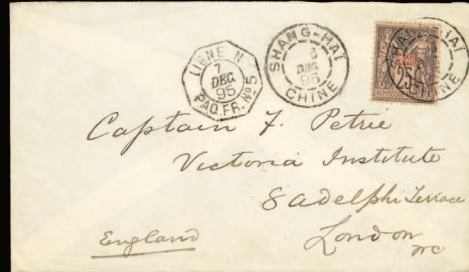 LIGNE N
7
DEC
95
PAQ. FR. Nº 5
SHANG-HAI
6
DEC
95
CHINE
SHANG-HAI
CHINE
25
Captain F. Petrie
Victoria Institute
8 Adelphi Terrace
London
WC
England